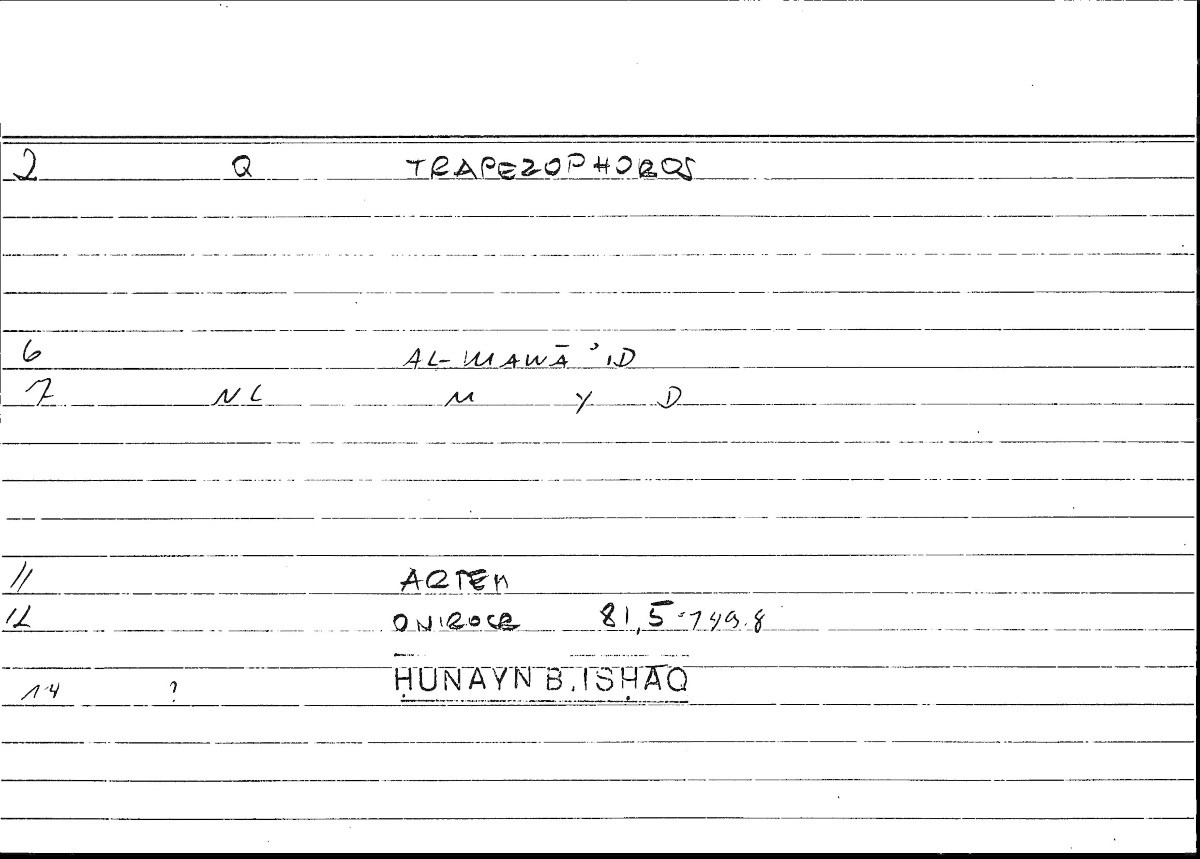 2 Q TRAPEZOPHOROS
6 AL-MAWĀʾID
7 NL M Y D
11 ARTEM
12 ONIROCR 81,5 149.8
14 ? ḤUNAYN B. ISḤĀQ